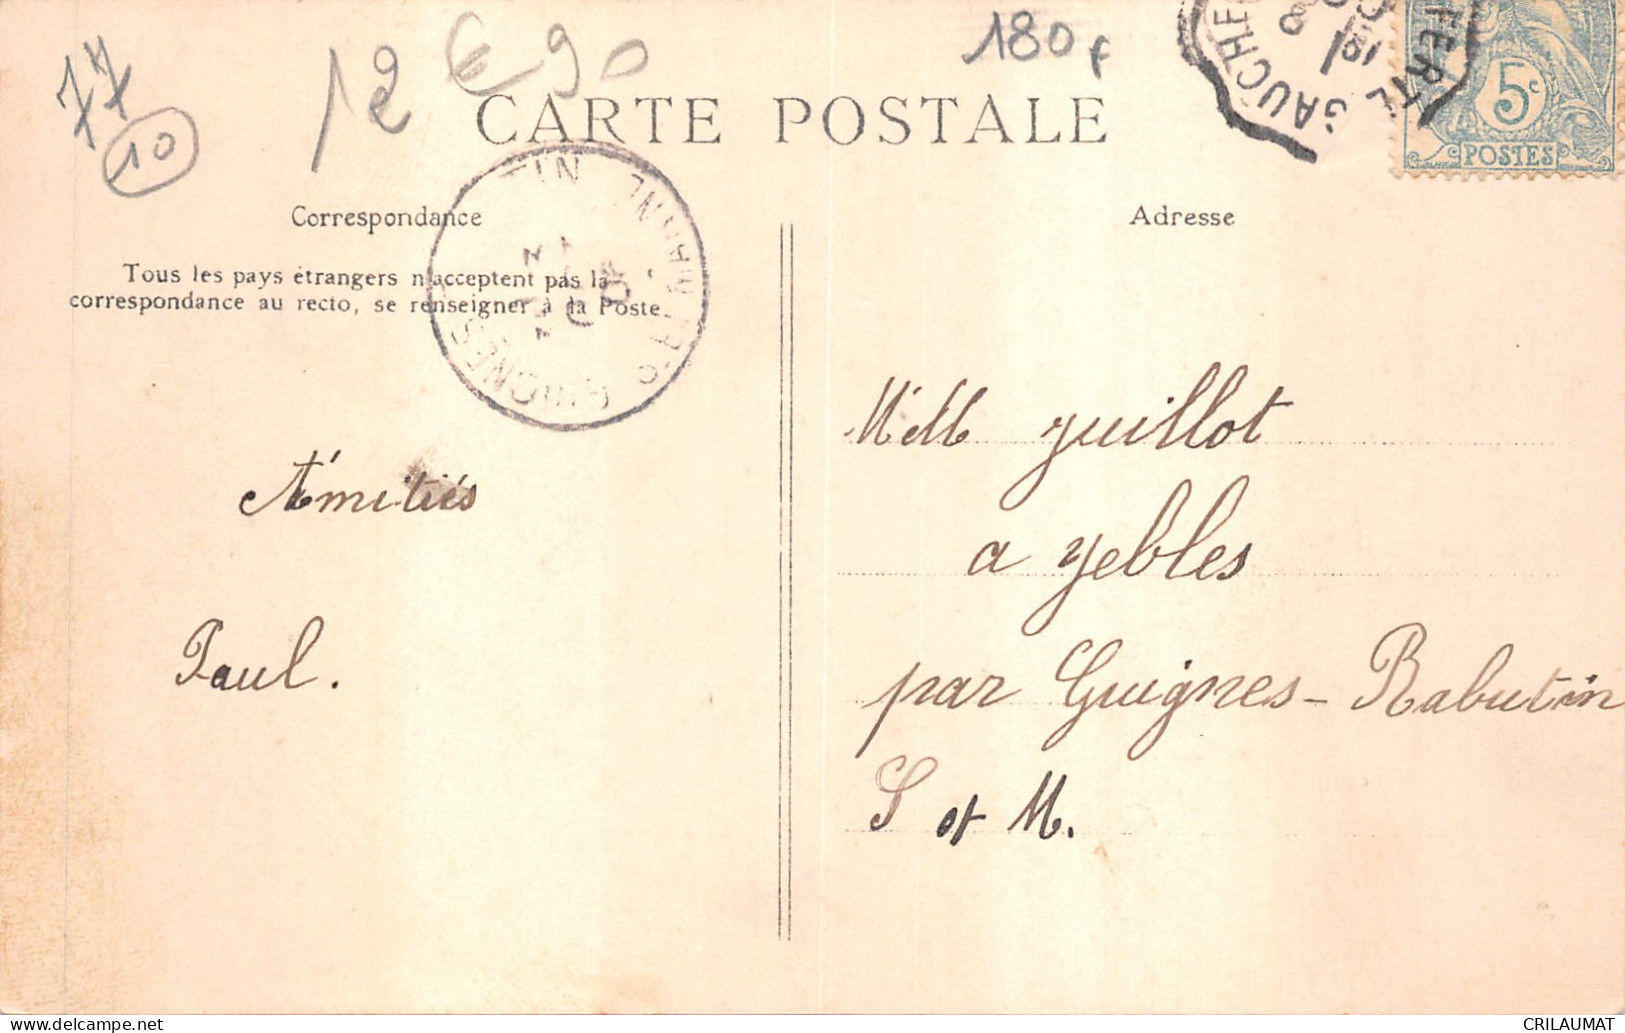 77
10
12 € 90
180 F
CARTE POSTALE
GAUCHE
FERTE
5c
POSTES
Correspondance
Adresse
Tous les pays étrangers n'acceptent pas la
correspondance au recto, se renseigner à la Poste
GUIGNES
Amitiés
Paul.
Melle guillot
a yebles
par Guignes-Rabutin
S et M.
CRILAUMAT